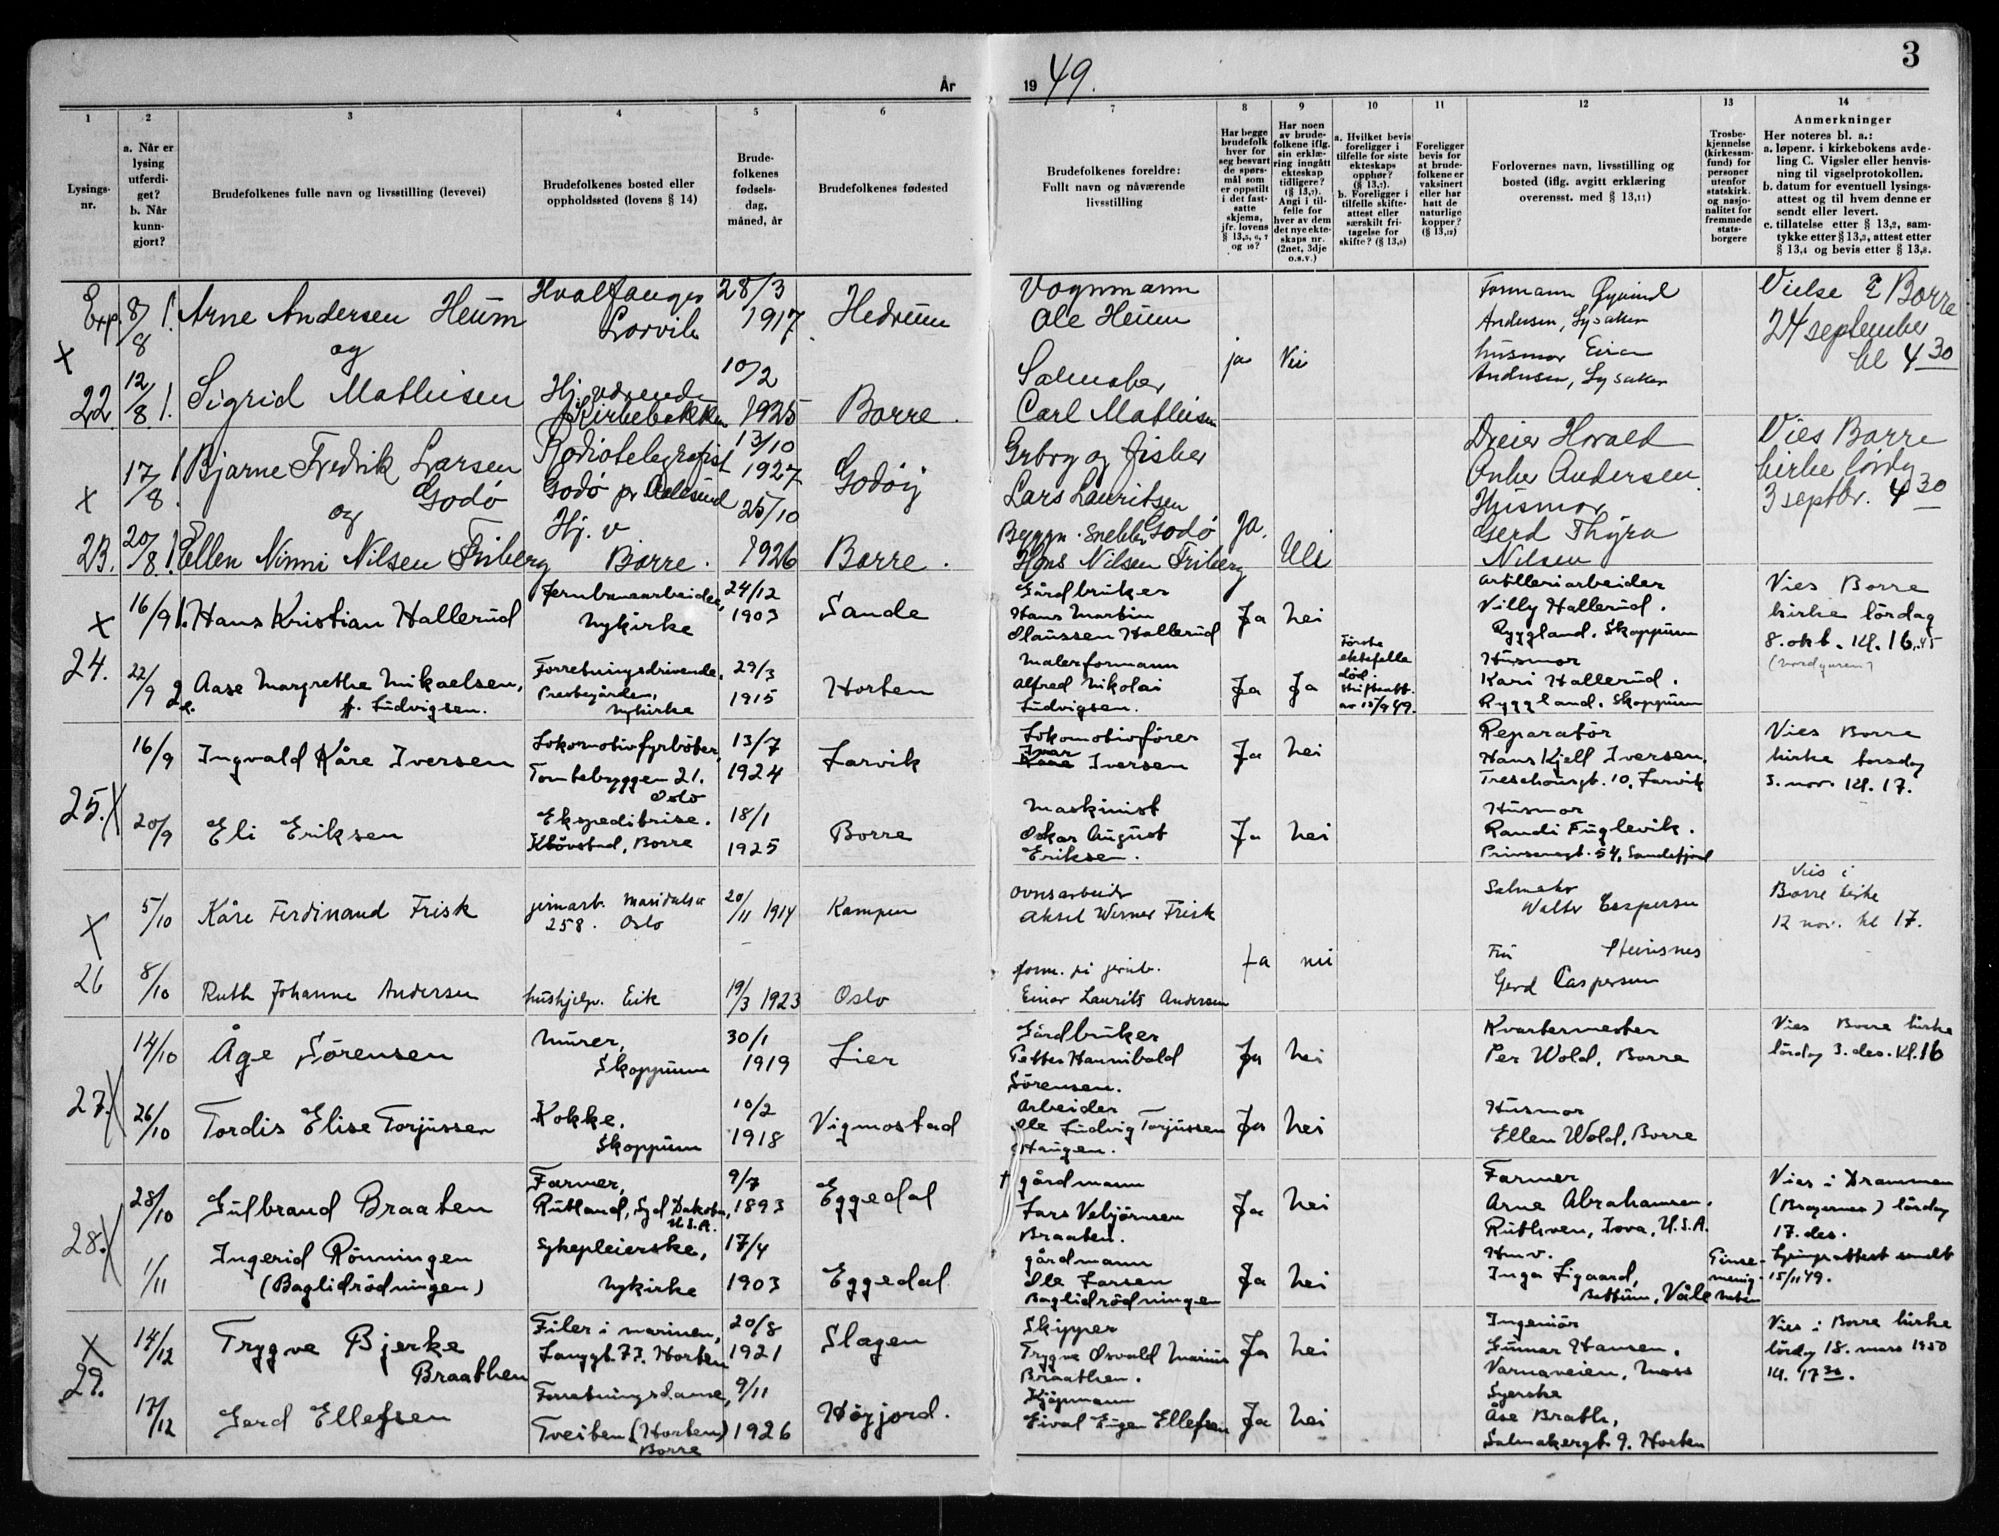 3
År
19 49.
1
2
3
4
5
6
7
8
9
10
11
12
13
14
Lysings-
nr.
a. Når er
lysing
utferdi-
get?
b. Når
kunn-
gjort?
Brudefolkenes fulle navn og livsstilling (levevei)
Brudefolkenes bosted eller
oppholdssted (lovens § 14)
Brude-
folkenes
fødsels-
dag,
måned, år
Brudefolkenes fødested
Brudefolkenes foreldre:
Fullt navn og nåværende
livsstilling
Har begge
brudefolk
hver for
seg besvart
de spørs-
mål som
er oppstilt
i det fast-
satte
skjema,
jfr. lovens
§ 13,5, 6, 7
og 10?
Har noen
av brude-
folkene iflg.
sin erklæ-
ring inngått
ekteskap
tidligere?
(§ 13,7).
Angi i til-
felle for
hver av dem
det nye ekte-
skaps nr.
(2net, 3dje
o.s.v.)
a. Hvilket bevis
foreligger i
tilfelle for siste
ekteskaps
opphør?
(§ 13,7).
b. Foreligger i
tilfelle skifte-
attest eller
særskilt fri-
tagelse for
skifte? (§ 13,9)
Foreligger
bevis for
at brude-
folkene er
vaksinert
eller har
hatt de
naturlige
kopper?
(§ 13,12)
Forlovernes navn, livsstilling og
bosted (iflg. avgitt erklæring
overensst. med § 13,11)
Trosbe-
kjennelse
(kirkesam-
fund) for
personer
utenfor
statskirk.
og nasjo-
nalitet for
fremmede
stats-
borgere
Anmerkninger
Her noteres bl. a.:
a. løpenr. i kirkebokens avde-
ling C. Vigsler eller henvis-
ning til vigselprotokollen.
b. datum for eventuell lysings-
attest og til hvem denne er
sendt eller levert.
c. tillatelse etter § 13,2, sam-
tykke etter § 13,3, attest etter
§ 13,4 og bevis etter § 13,8.
Exp. 8/8
Arne Andersen Heum
Hvalfanger
Larvik
28/3
1917
Hedrum
Vognmann
Ole Heum
Formann Øyvind
Andersen, Lysaker
Vielse i Borre
24 september
kl 4 30
x
og
22.
12/8
Sigrid Mathisen
Hj. værende
Kirkebakken
10/2
1925
Borre.
Salmaker
Carl Mathisen
ja
Nei
husmor
Andersen, Lysaker
17/8.
Bjarne Fredrik Larsen
Godø
Radiotelegrafist
Godø pr Aalesund
13/10
1927
Godøy
Grbr og fisker
Lars Lauritsen
Godø
Dreier Harald
Anker Andersen
Vies Borre
kirke lørdg
3 septbr. 4 30
x
og
23.
20/8.
Ellen Ninni Nilsen Friberg
Hj. v
Borre.
25/10
1926
Borre.
Byggn. Snekker
Hans Nilsen Friberg
Ja.
Nei
Husmor
Gerd Thyra
Nilsen
16/9
Hans Kristian Hallerud
Jernbanearbeider,
Nykirke
24/12
1903
Sande
Gårdbruker
Hans Martin
Olaussen Hallerud
Ja
Nei
Artilleriarbeider
Villy Hallerud.
Ryggland. Skoppum
Vies Borre
kirke lördag
8. okt. kl. 16.45
x
24.
22/9
Aase Margrethe Mikaelsen,
f. Ludvigsen.
Forretningsdrivende.
Prestegården,
Nykirke
29/3
1915
Horten
Malerformann
Alfred Nikolai
Ludvigsen.
Ja
Ja
Første
ektefelle
död.
Skifteatt.
av 15/9 49.
Husmor
Kari Hallerud.
Ryggland. Skoppum
16/9
Ingvald Kåre Iversen
Lokomotivfyrböter,
Tombebyggen 21.
Oslo
13/7
1924
Larvik
Lokomotivförer
Ivar
Kåre Iversen
Ja
Nei
Reparatör
Hans Kjell Iversen.
Treschowsgt. 10, Larvik
Vies Borre
kirke torsdag
3. nov. kl. 17.
25. x
20/9
Eli Eriksen
Ekspeditrise.
Klövstad, Borre
18/1
1925
Borre
Maskinist
Oskar August
Eriksen.
Ja
Nei
Husmor
Randi Fuglevik.
Prinsensgt. 54, Sandefjord
x
5/10
Kåre Ferdinand Frisk
jernarb. Maridalsv
258. Oslo
20/11 1914
Kampen
Ovnsarbeider
Aksel Werner Frisk
Salmaker
Walter Caspersen
Vies i
Borre kirke
12 nov. kl 17.
26
8/10
Ruth Johanne Andersen
hushjelp. Eik
19/3 1923
Oslo
form. på jernb.
Einar Laurits Andersen
Ja
nei
Fru Steinsnes
Gerd Caspersen
14/10
Åge Sörensen
Murer,
Skoppum
30/1
1919
Lier
Gårdbruker
Petter Hannibald
Sörensen.
Ja
Nei
Kvartermester
Per Wold, Borre
Vies Borre kirke
lördag 3. des. kl. 16
27. x
26/10
Tordis Elise Torjussen
Kokke.
Skoppum
10/2
1918
Vigmostad
Arbeider
Ole Ludvig Torjussen
Haugen.
Ja
Nei
Husmor
Ellen Wold, Borre
28/10
Gulbrand Braaten
Farmer,
Rutland, Syd Dakota,
U.S.A.
9/7
1893
Eggedal
† gårdmann
Lars Vebjörnsen
Braaten.
Ja
Nei
Farmer
Arne Abrahamsen.
Ruthven, Iova, U.S.A.
Vies i Drammen
(Bragernes) lördag
17. des.
Lysingsattest sendt
15/11 49.
28. x
1/11
Ingerid Rönningen
(Baglidrödningen)
Sykepleierske,
Nykirke
17/4
1903
Eggedal
gårdmann
Ole Larsen
Baglidrödningen
Ja
Nei
Hmv.
Inga Sigaard,
Våle
Pinse-
menig-
heten
x
14/12
Trygve Bjerke
Braathen
Filer i marinen,
Langgt. 73. Horten
20/8
1921
Slagen
Skipper
Trygve Osvald Marius
Braathen.
Ja
Nei
Ingeniör
Gunnar Hansen.
Varnaveien, Moss
Vies i Borre kirke
lördag 18. mars 1950
kl. 17 30.
29.
17/12
Gerd Ellefsen
Forretningsdame,
Tveiten (Horten)
Borre
9/11
1926
Høyjord.
Kjöpmann
Eival Eugen Ellefsen
Ja
Nei
Syerske
Åse Brath,
Salmakergt. 9. Horten